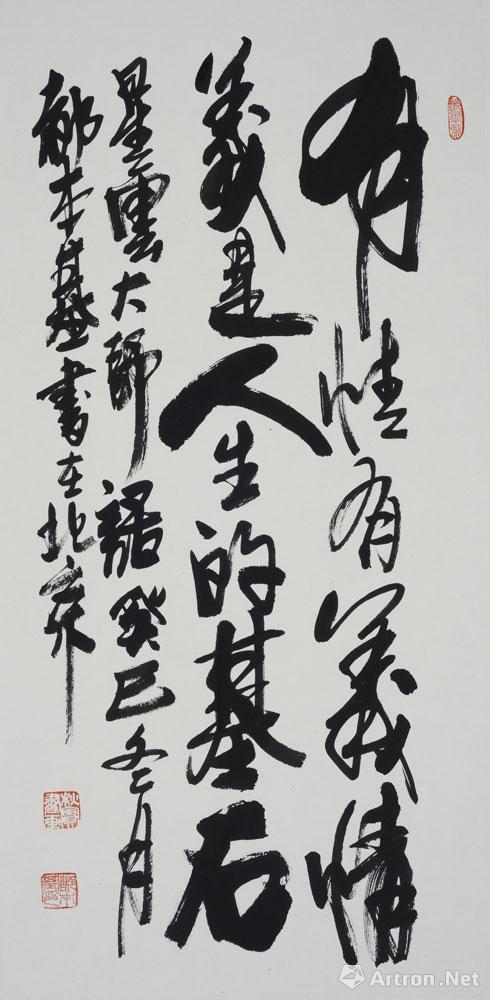 有情有義情
義是人生的基石
星雲大師語癸巳冬月
都本基書在北京
Artron.Net